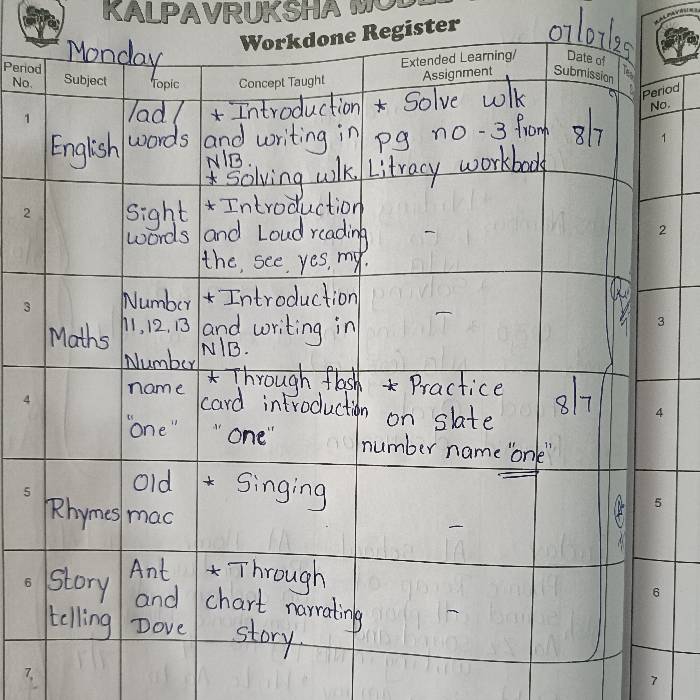 KALPAVRUKSHA
Workdone Register
Monday
07/07/25
Period No.
Subject
Topic
Concept Taught
Extended Learning/
Assignment
Date of
Submission
1
English
/ad/
words
* Introduction
and writing in
N/B.
* Solving w/k.
* Solve w/k
pg no - 3 from
Litracy workbook
8/7
2
Sight
words
* Introduction
and Loud reading
the, see, yes, my.
–
3
Maths
Number
11, 12, 13
* Introduction
and writing in
N/B.
–
4
Number
name
"one"
* Through flash
card introduction
"one"
* Practice
on slate
number name "one"
8/7
5
Rhymes
Old
mac
* Singing
–
6
Story
telling
Ant
and
Dove
* Through
chart narrating
story.
–
7
Period
No.
1
2
3
4
5
6
7